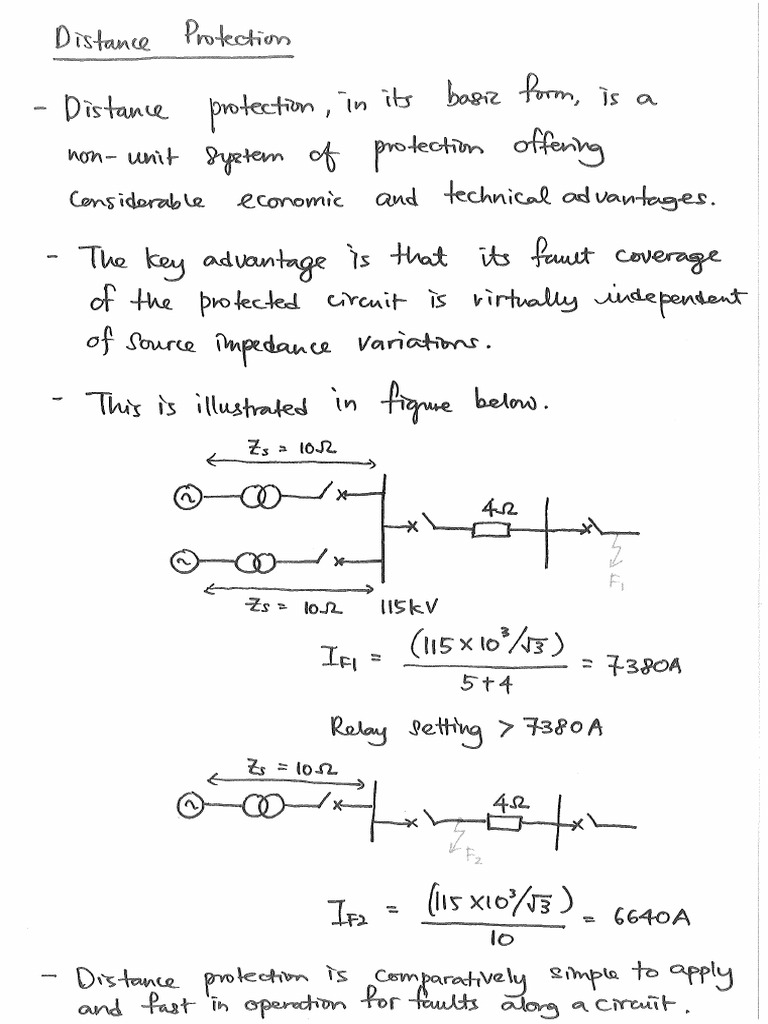 Distance Protection
- Distance protection, in its basic form, is a
non-unit system of protection offering
considerable economic and technical advantages.
- The key advantage is that its fault coverage
of the protected circuit is virtually independent
of source impedance variations.
- This is illustrated in figure below.
Zs = 10Ω
4Ω
F1
Zs = 10Ω 115kV
IF1 = (115×10³/√3) / 5+4 = 7380A
Relay setting > 7380A
Zs = 10Ω
4Ω
F2
IF2 = (115×10³/√3) / 10 = 6640A
- Distance protection is comparatively simple to apply
and fast in operation for faults along a circuit.